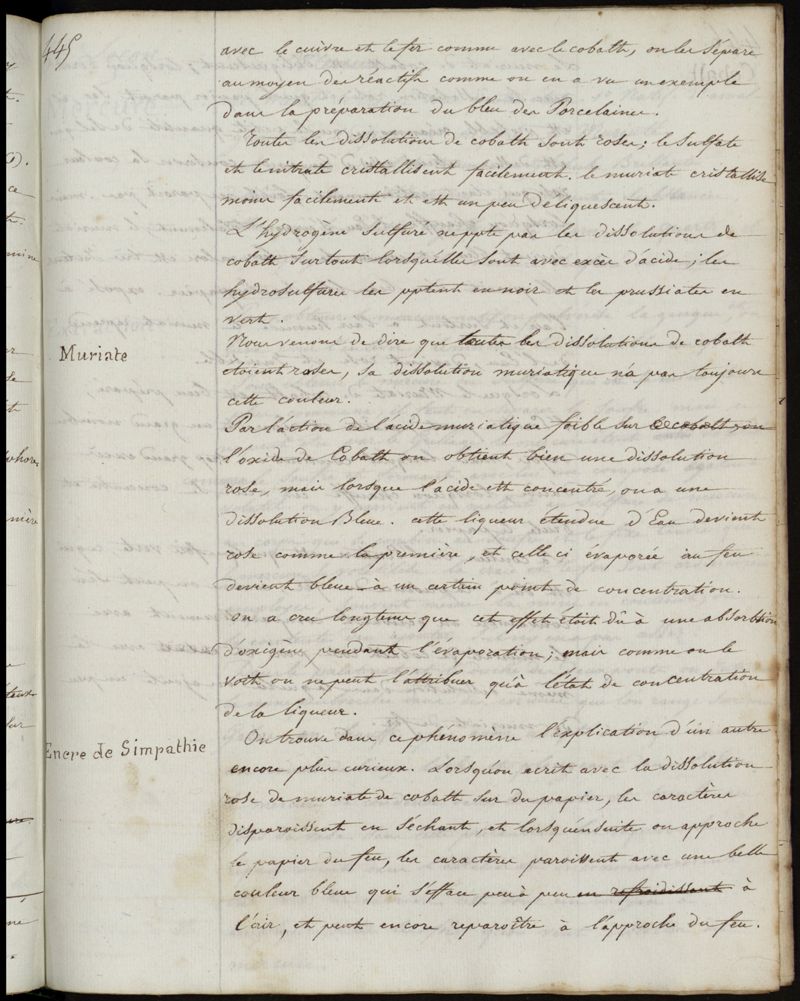 445
avec le cuivre et le fer comme avec le cobalt, on les sépare
au moyen des réactifs comme on en a vu un exemple
dans la préparation du bleu des Porcelaines.
Toutes les dissolutions de cobalt sont roses; le sulfate
et le nitrate cristallisent facilement. le muriate cristallise
moins facilement et est un peu déliquescent.
L'hydrogène sulfuré neppte pas les dissolutions de
cobalt surtout lorsquelles sont avec excès d'acide; les
hydrosulfures les pptent en noir et les prussiates en
vert.
Muriate
Nous venons de dire que toutes les dissolutions de cobalt
etoient roses, sa dissolution muriatique n'a pas toujours
cette couleur.
Par l'action de l'acide muriatique foible sur le cobalt, ou
l'oxide de Cobalt on obtient bien une dissolution
rose, mais lorsque l'acide est concentré, on a une
dissolution Bleue. cette liqueur étendue d'Eau devient
rose comme la première, et celle ci évaporée au feu
devient bleue à un certain point de concentration.
on a cru longtems que cet effet étoit dû à une absorbtion
d'oxigène pendant l'évaporation; mais comme on le
voit on ne peut l'attribuer qu'à l'état de concentration
de la liqueur.
Encre de Simpathie
On trouve dans ce phénomène l'explication d'un autre
encore plus curieux. Lorsqu'on ecrit avec la dissolution
rose de muriate de cobalt sur du papier, les caractères
disparoissent en séchant, et lorsqu'ensuite on approche
le papier du feu, les caractères paroissent avec une belle
couleur bleue qui s'efface peu à peu en refroidissant à
l'air, et peut encore reparoître à l'approche du feu.